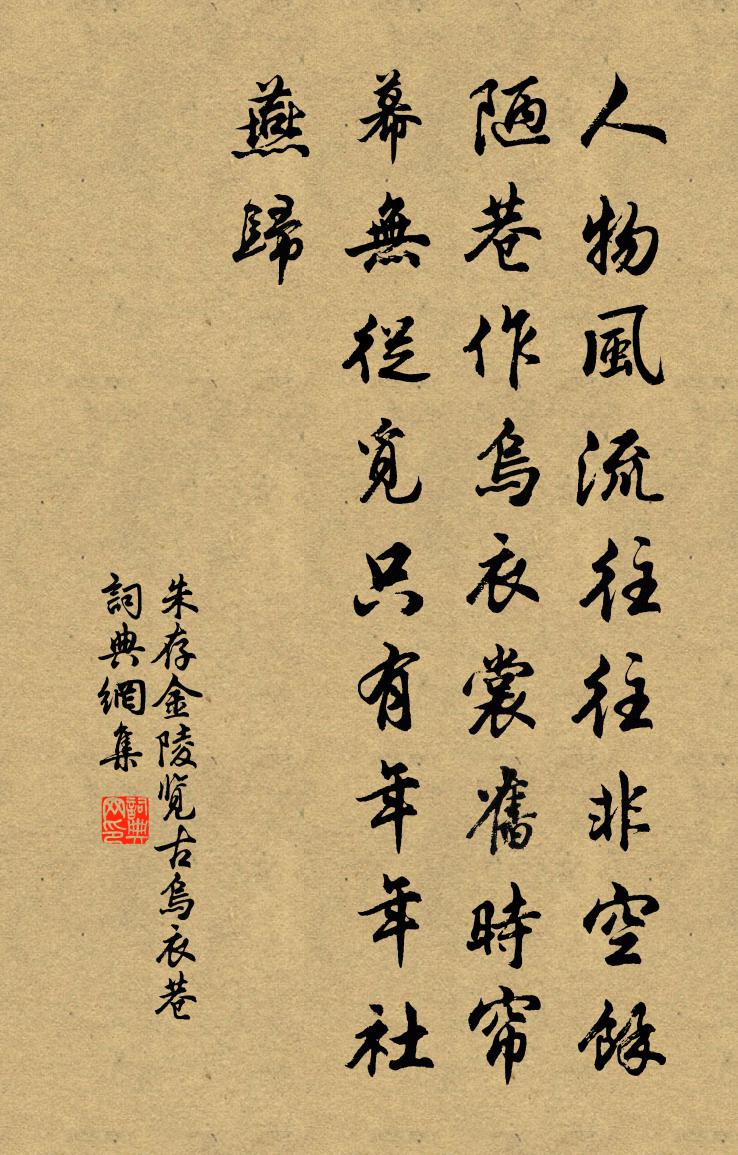 人物風流往往非空餘
陋巷作烏衣裳舊時帘
幕無從覓只有年年社
燕歸
朱存金陵览古烏衣巷
詞典網集
詞典网印